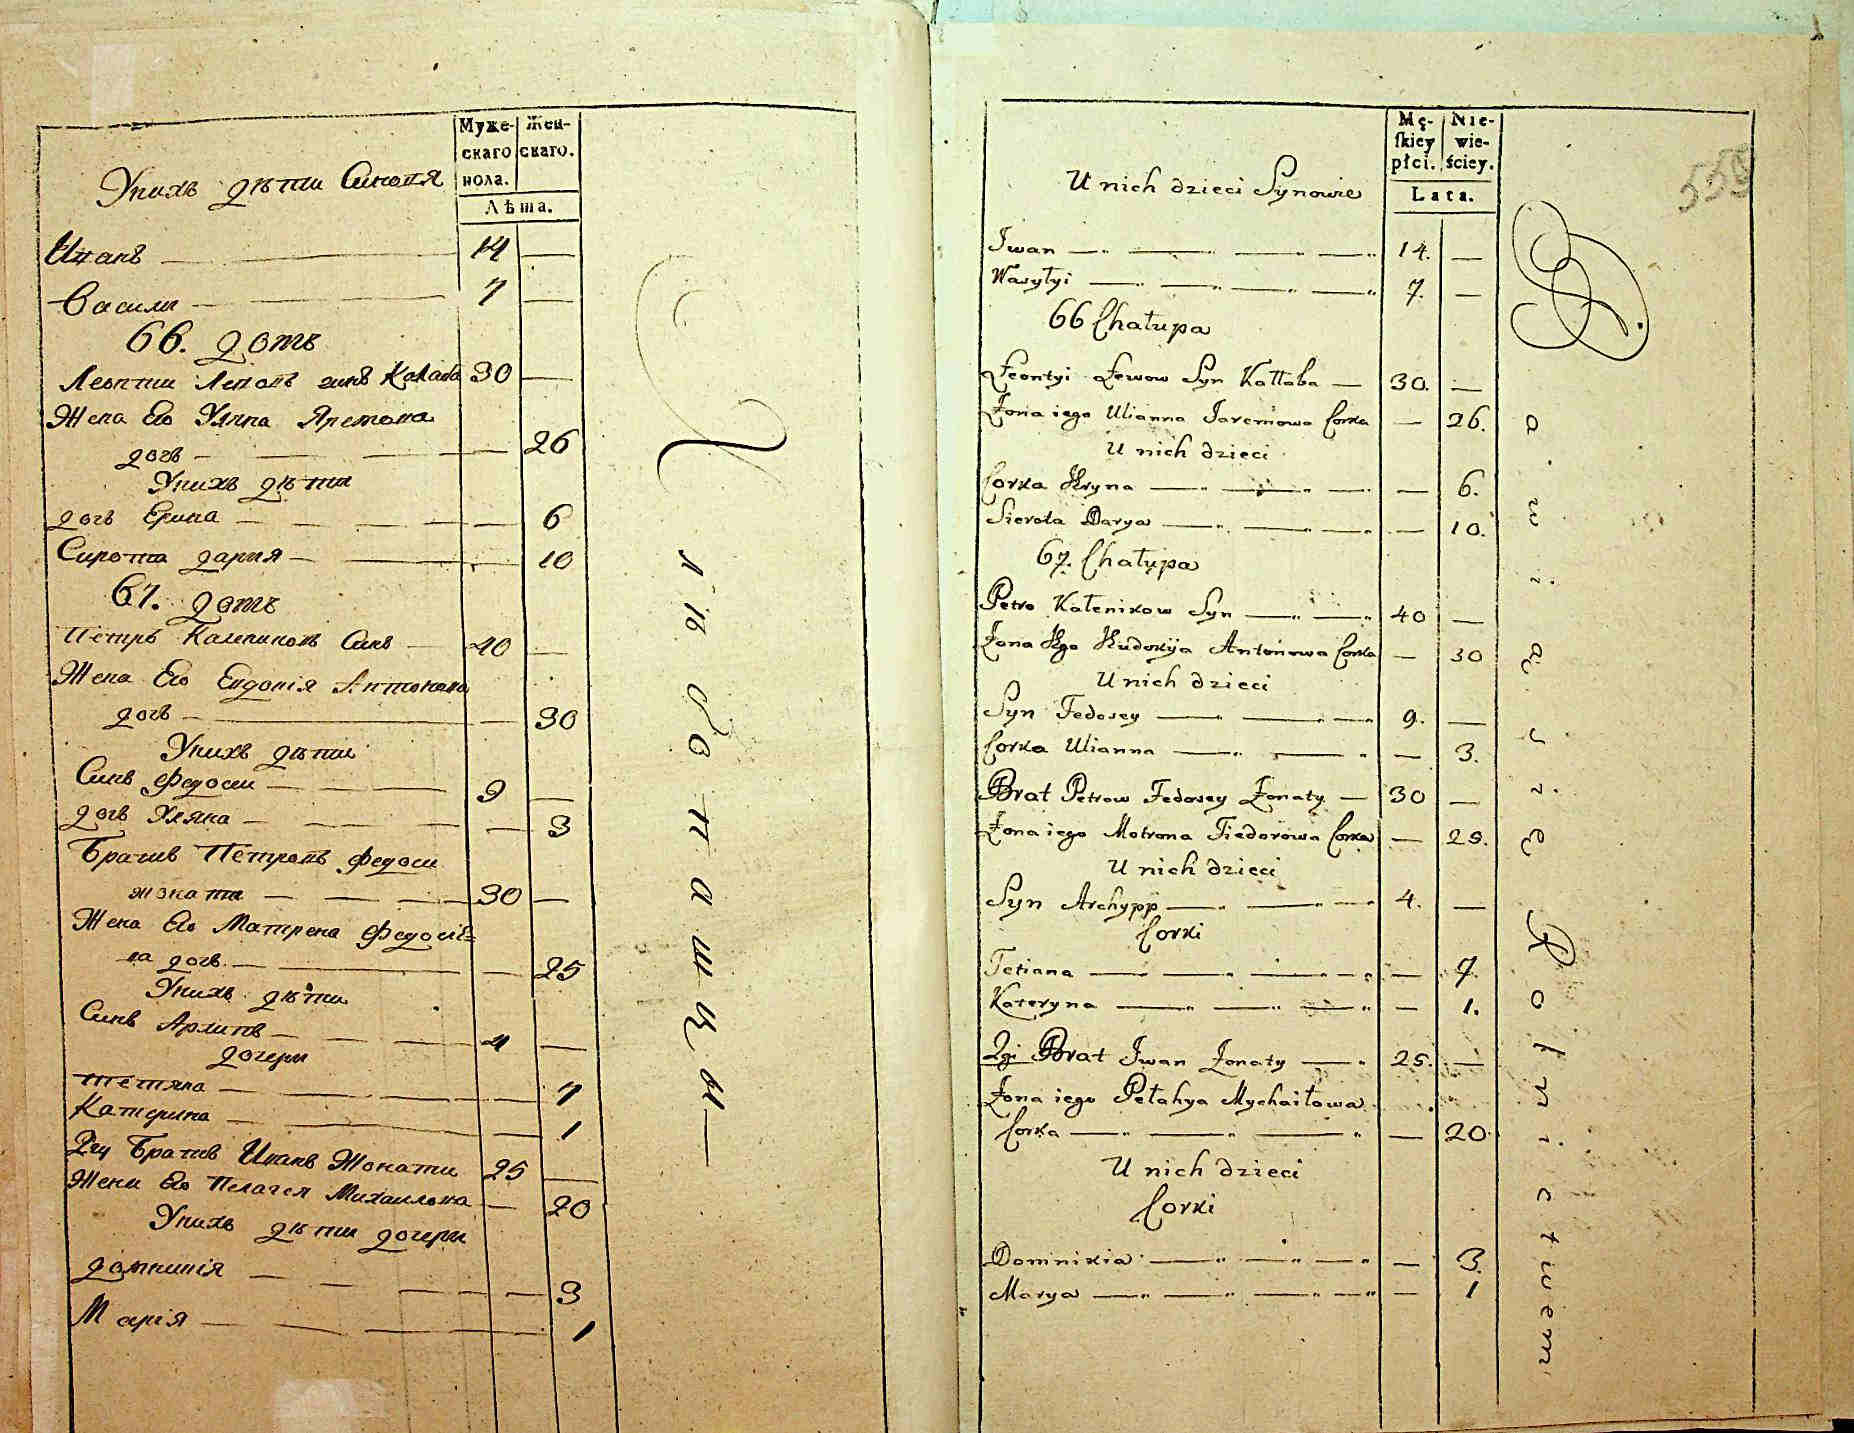 Муже-
скаго
пола.
Жен-
скаго.
Лѣта.
Унихъ дѣти Синовя
Иванъ 14
Васили 7
66. домъ
Леонти Левовъ синъ Калаба 30
Жена Его Уляна Яремова
дочь 26
Унихъ дѣти
дочь Ерина 6
Сирота дария 10
67. домъ
Петръ Калениковъ Синъ 40
Жена Его Евдокія Антонова
дочь 30
Унихъ дѣти
Синъ Федоси 9
дочь Уляна 3
Братъ Петровъ Федоси
жоната 30
Жена Его Матрена Федосіе=
ва дочь 25
Унихъ дѣти
Синъ Архипъ 4
дочери
Тетяна 7
Катерина 1
2гу Братъ Иванъ Жонати 25
Жена Его Пелагея Михаилова 20
Унихъ дѣти дочери
домникія 3
Марія 1
хлѣбопашцы
Mę-
skiey
płci.
Nie-
wie-
ściey.
Lata.
555
U nich dzieci Synowie
Iwan 14.
Wasyłyi 7.
66 Chałupa
Leontyi Lewow Syn Kałłaba 30.
Żona iego Ulianna Jaremowa Corka 26.
U nich dzieci
Corka Hryna 6.
Sierota Darya 10.
67. Chałupa
Petro Kalenikow Syn 40
Żona Ego Eudokija Antonowa Corka 30
U nich dzieci
Syn Fedosey 9.
Corka Ulianna 3.
Brat Petrow Fedosey Żonaty 30
Żona iego Motrona Fiedorowa Corka 25.
U nich dzieci
Syn Archypp 4.
Corki
Tetiana 7.
Kateryna 1.
2gi Brat Iwan Żonaty 25.
Żona iego Pełahya Mychaiłowa
Corka 20.
U nich dzieci
Corki
Dominikia 3.
Marya 1
Bawią się Rolnictwem